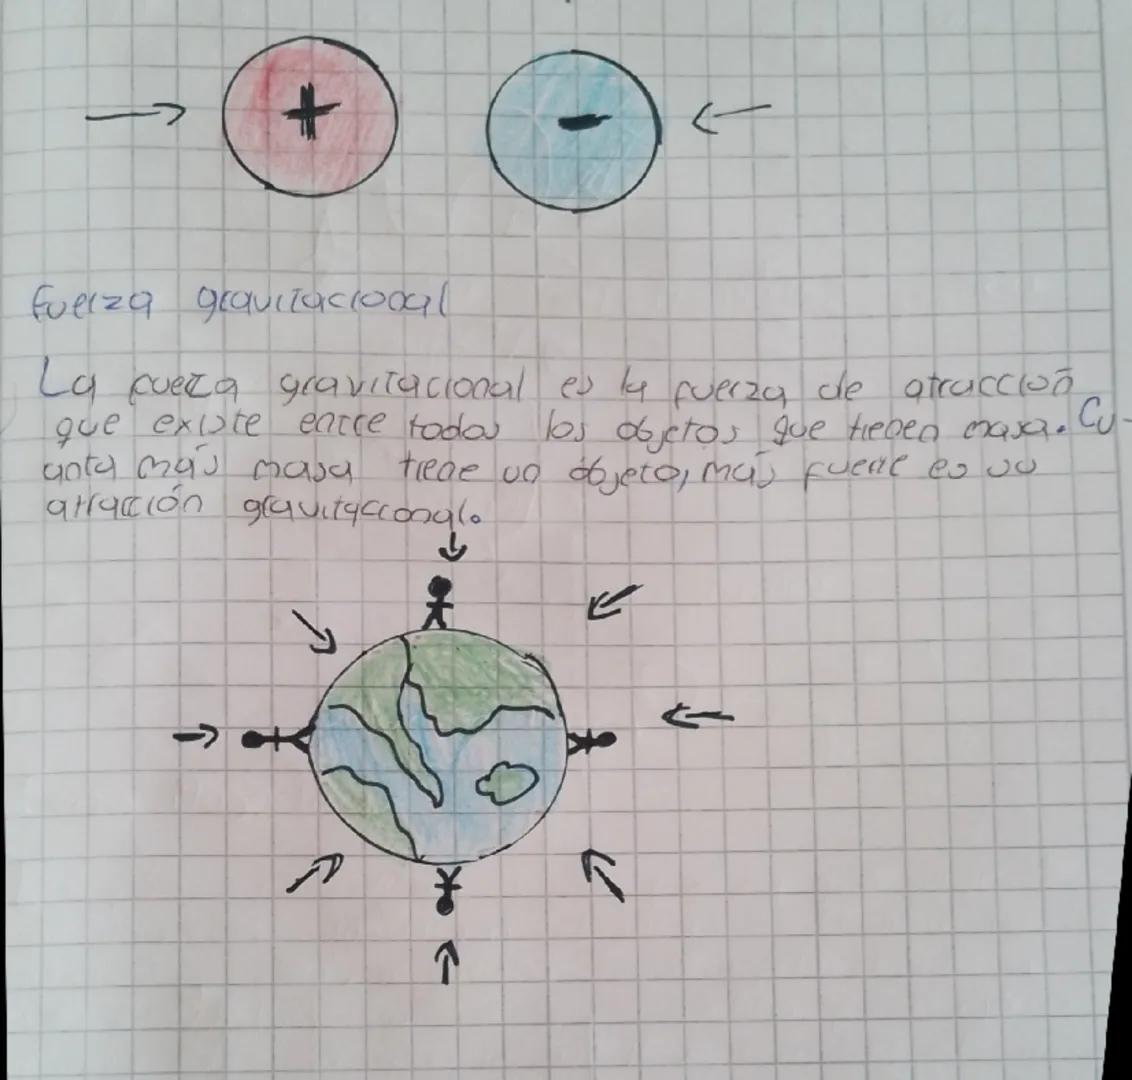 + -
Fuerza gravitacional
La fuerza gravitacional es la fuerza de atracción
que existe entre todos los objetos que tienen masa. Cu-
anta más masa tiene un objeto, más fuerte es su
atracción gravitacional.